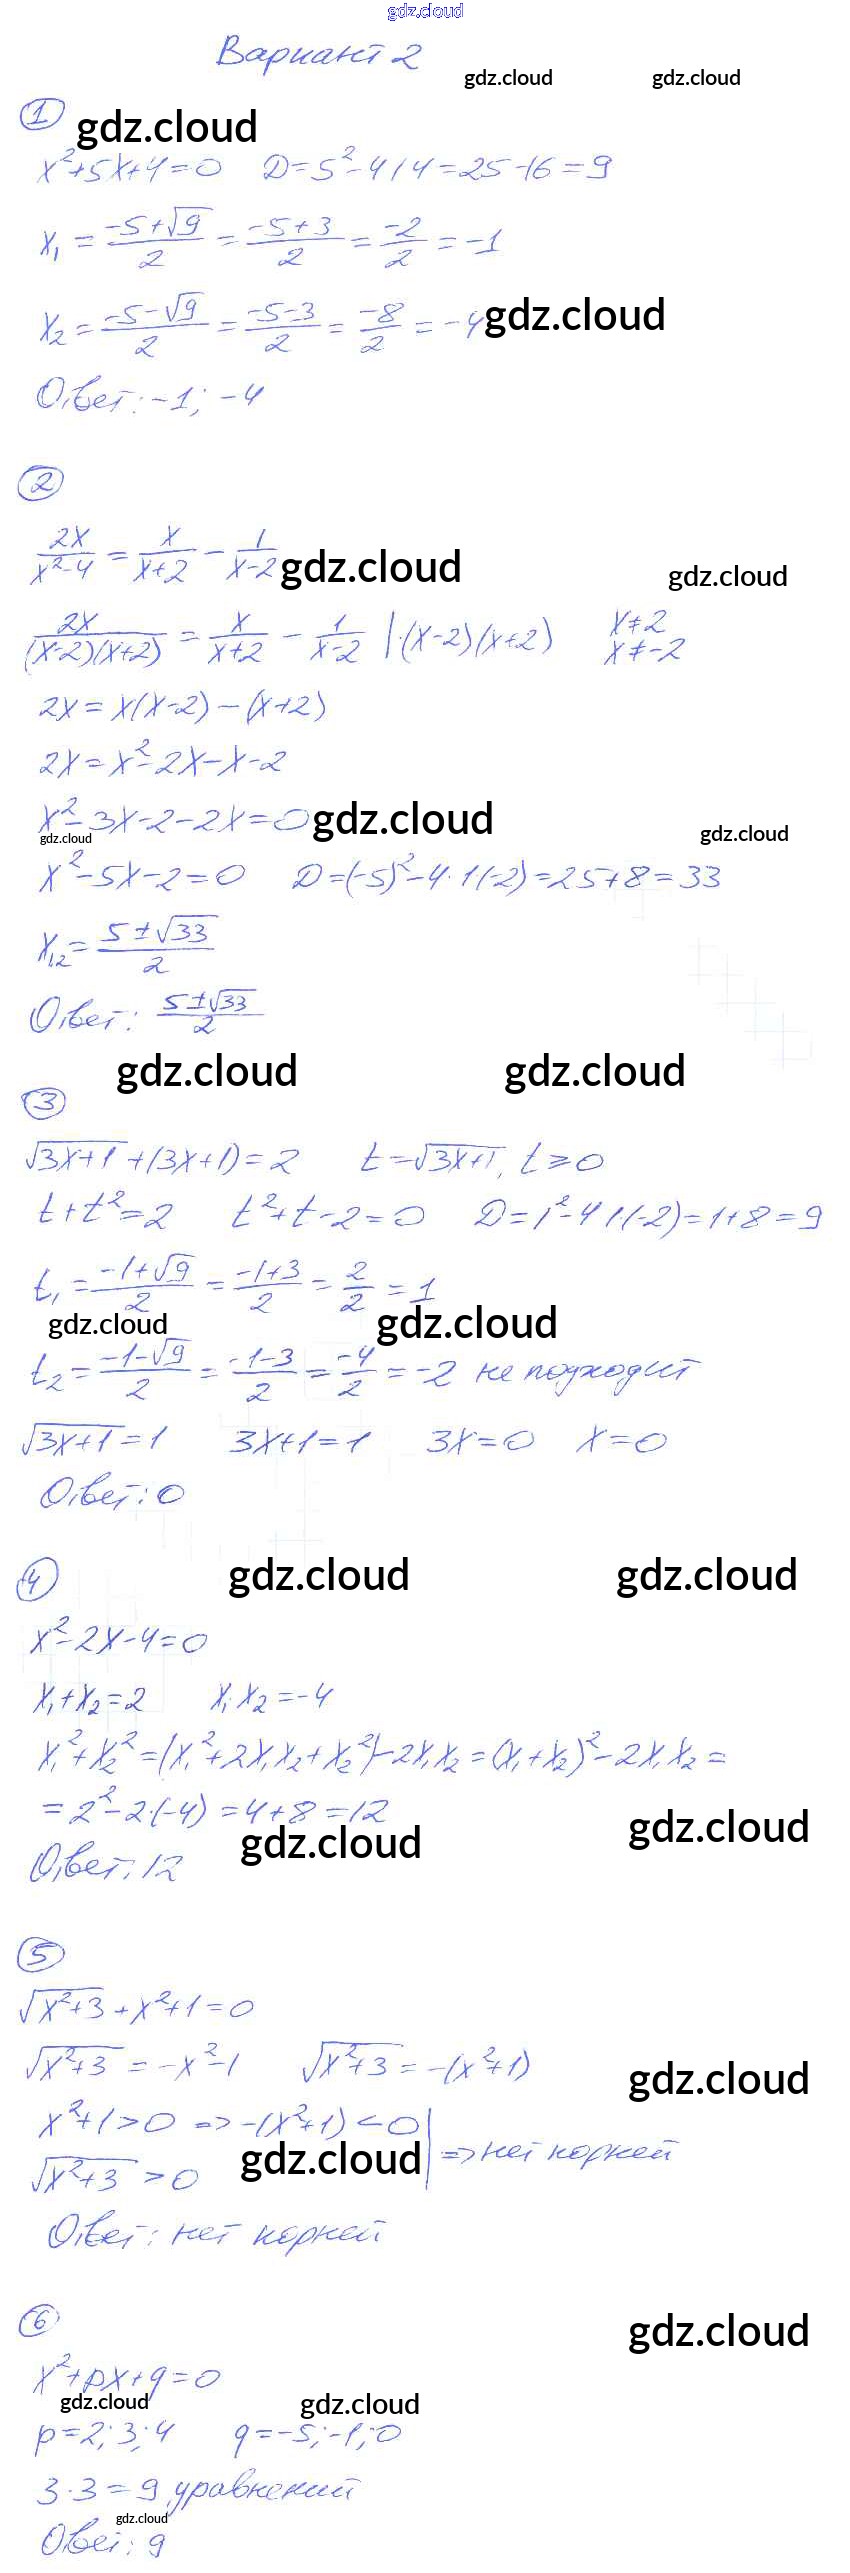 gdz.cloud
Вариант 2
gdz.cloud gdz.cloud
1
gdz.cloud
x²+5x+4=0 D=5²-4·1·4=25-16=9
x₁ = (-5+√9)/2 = (-5+3)/2 = -2/2 = -1
x₂ = (-5-√9)/2 = (-5-3)/2 = -8/2 = -4
gdz.cloud
Ответ: -1; -4
2
2x/(x²-4) = x/(x+2) - 1/(x-2)
gdz.cloud gdz.cloud
2x/((x-2)(x+2)) = x/(x+2) - 1/(x-2) |·(x-2)(x+2) x≠2 x≠-2
2x = x(x-2) - (x+2)
2x = x²-2x-x-2
x²-3x-2-2x=0
gdz.cloud gdz.cloud gdz.cloud
x²-5x-2=0 D=(-5)²-4·1·(-2)=25+8=33
x₁,₂ = (5±√33)/2
Ответ: (5±√33)/2
gdz.cloud gdz.cloud
3
√(3x+1) + (3x+1) = 2 t=√(3x+1), t≥0
t+t²=2 t²+t-2=0 D=1²-4·1·(-2)=1+8=9
t₁ = (-1+√9)/2 = (-1+3)/2 = 2/2 = 1
gdz.cloud gdz.cloud
t₂ = (-1-√9)/2 = (-1-3)/2 = -4/2 = -2 не подходит
√(3x+1)=1 3x+1=1 3x=0 x=0
Ответ: 0
gdz.cloud gdz.cloud
4
x²-2x-4=0
x₁+x₂=2 x₁·x₂=-4
x₁²+x₂²=(x₁²+2x₁x₂+x₂²)-2x₁x₂=(x₁+x₂)²-2x₁x₂=
=2²-2·(-4)=4+8=12
gdz.cloud gdz.cloud
Ответ: 12
5
√(x²+3)+x²+1=0
√(x²+3)=-x²-1 √(x²+3)=-(x²+1)
gdz.cloud
x²+1>0 => -(x²+1)<0 |
√(x²+3)>0 | => нет корней
gdz.cloud
Ответ: нет корней
6
gdz.cloud
x²+px+q=0
gdz.cloud gdz.cloud
p=2; 3; 4 q=-5; -1; 0
3·3=9 уравнений
gdz.cloud
Ответ: 9